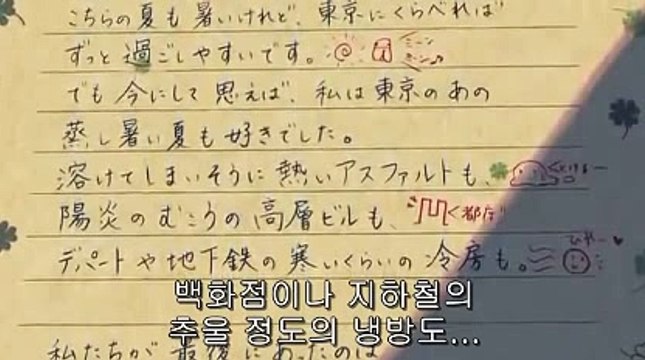 こちらの夏も暑いけれど、東京にくらべれば
ずっと過ごしやすいです。
でも今にして思えば、私は東京のあの
蒸し暑い夏も好きでした。
溶けてしまいそうに熱いアスファルトも、
陽炎のむこうの高層ビルも、 都庁
デパートや地下鉄の寒いくらいの冷房も。
백화점이나 지하철의
추울 정도의 냉방도...
私たちが最後にあったのは